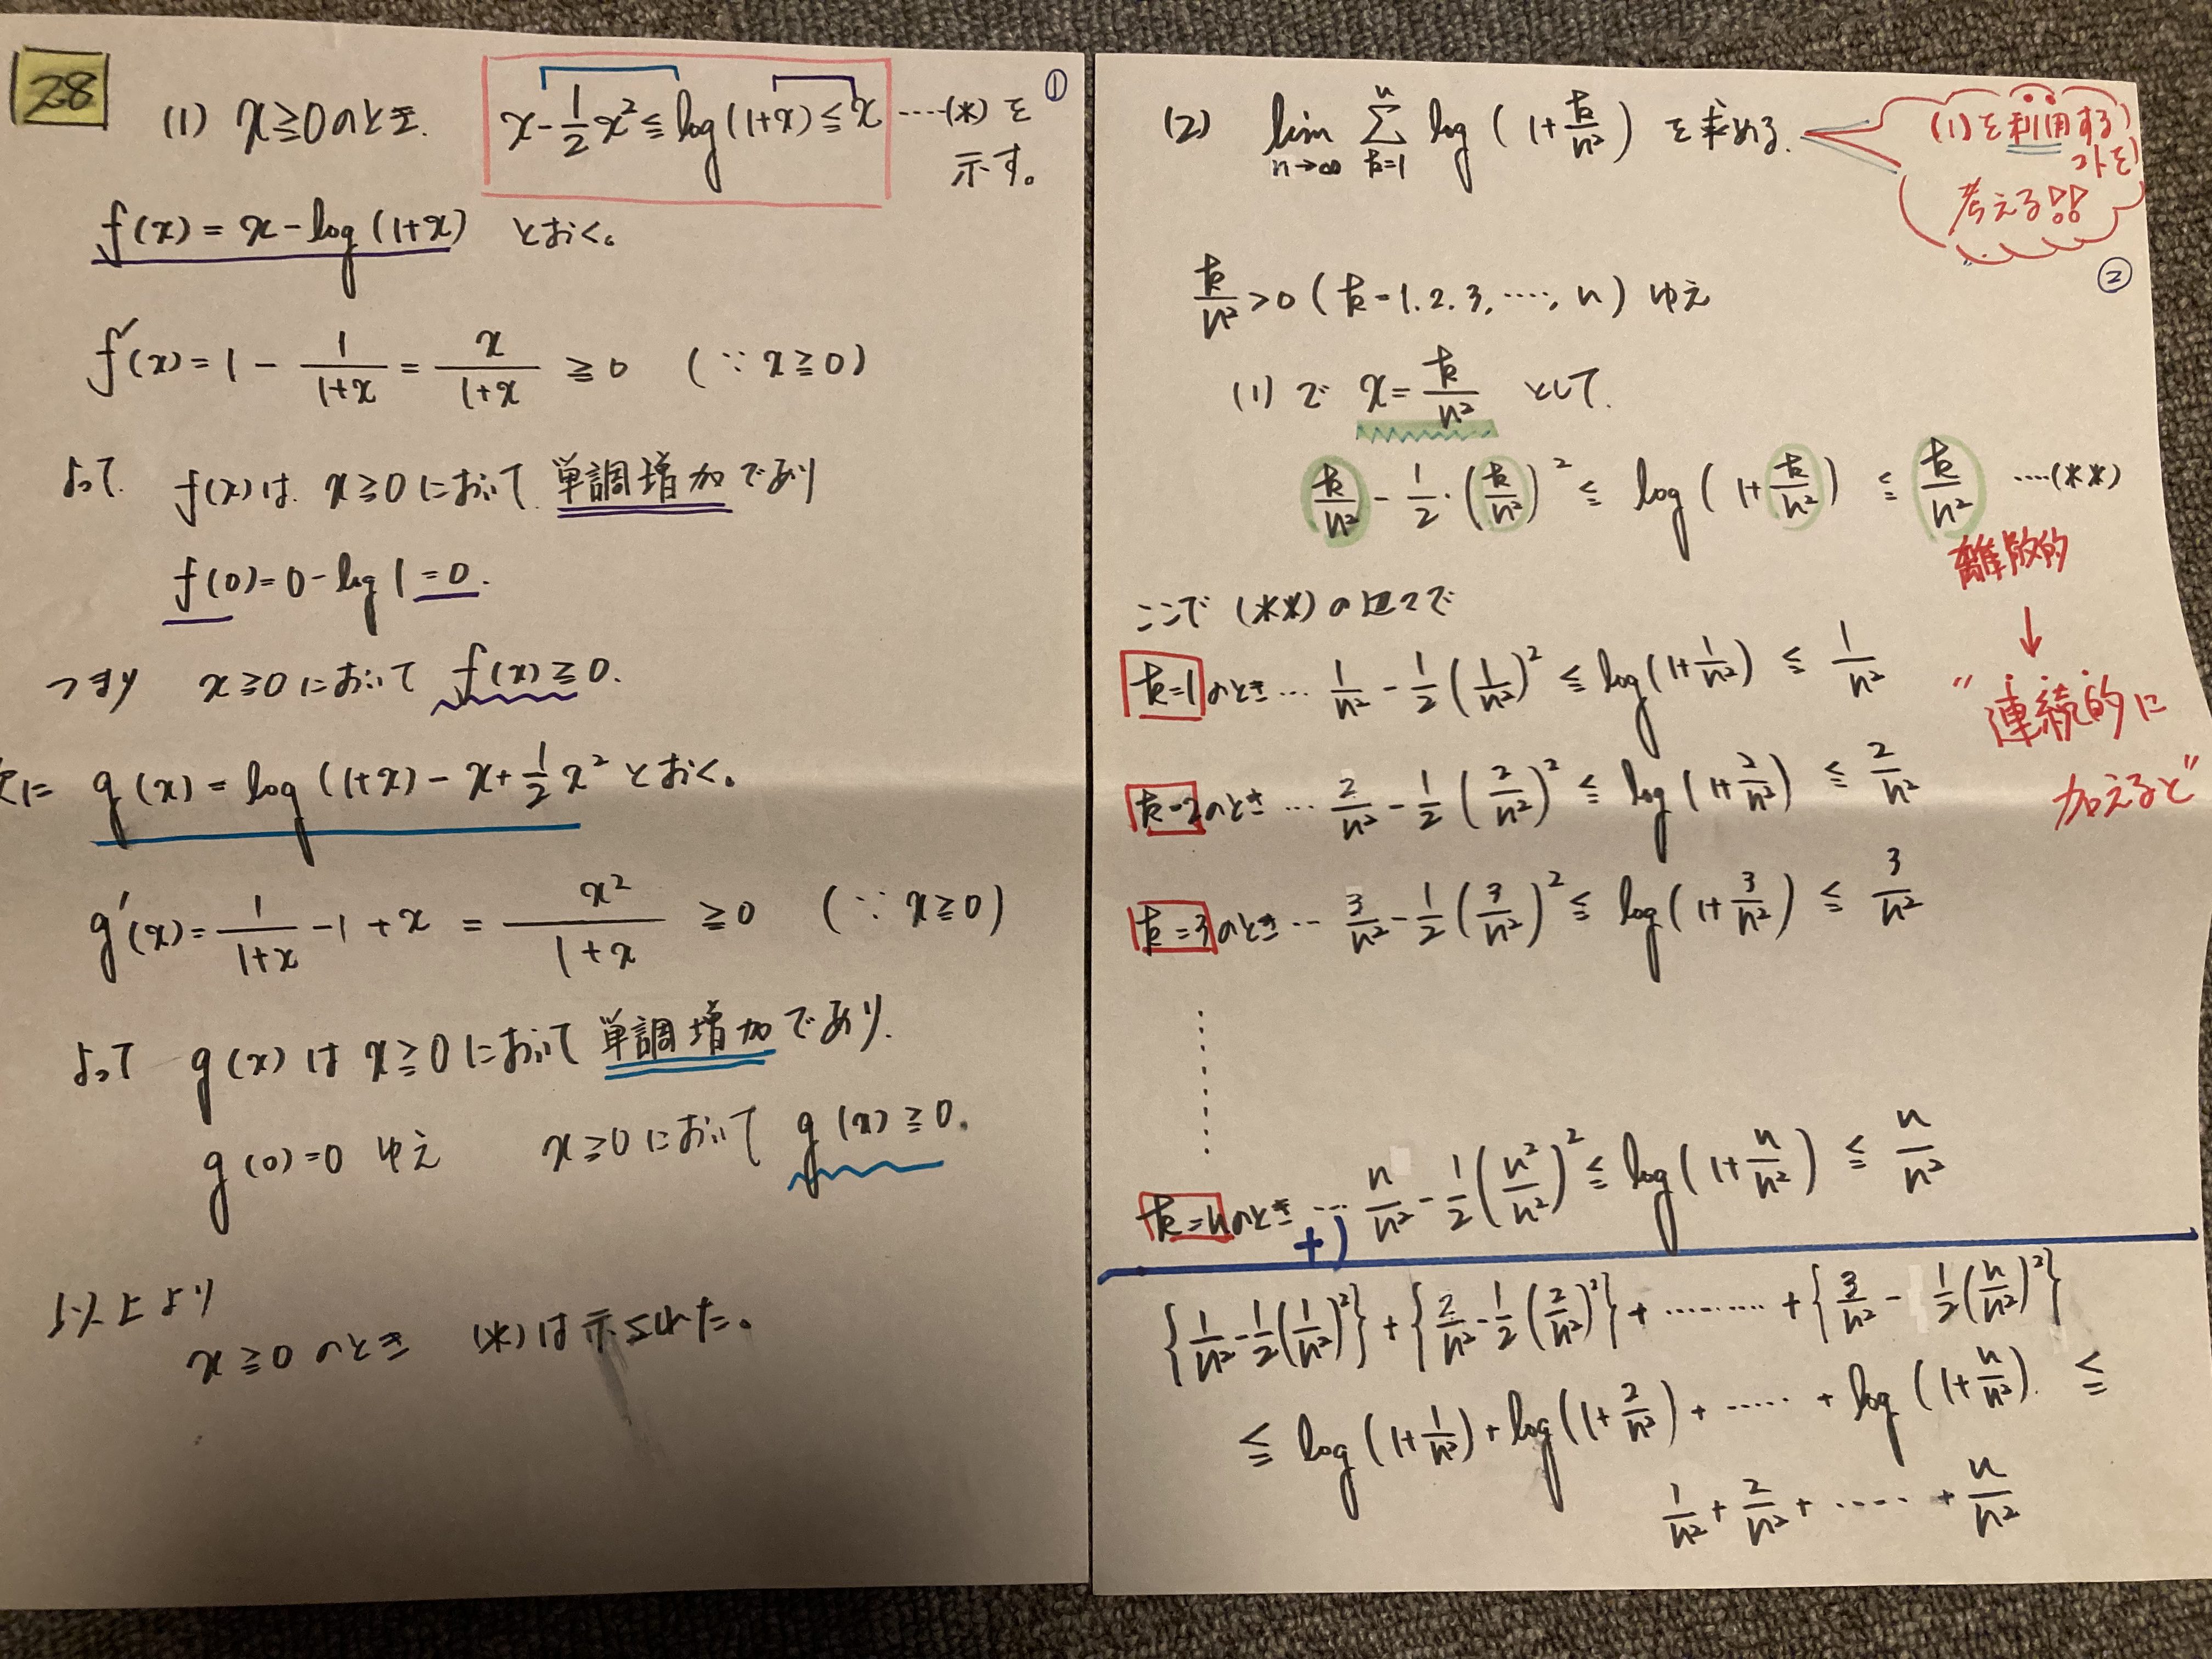 28
(1) x≧0のとき. x-1/2x²≦log(1+x)≦x ‥‥(*)を ①
示す。
f(x)=x-log(1+x) とおく。
f'(x)=1-1/(1+x)=x/(1+x)≧0 (∵x≧0)
よって f(x)は x≧0において 単調増加であり
f(0)=0-log1=0.
つまり x≧0において f(x)≧0.
次に g(x)=log(1+x)-x+1/2x² とおく。
g'(x)=1/(1+x)-1+x=x²/(1+x)≧0 (∵x≧0)
よって g(x)は x≧0において 単調増加であり.
g(0)=0 ゆえ x≧0において g(x)≧0.
以上より
x≧0のとき (*)は示された。
(2) lim n→∞ Σ k=1 n log(1+k/n²) を求める.
(1)を利用する
コトを
考える!!
②
k/n²>0 (k=1.2.3.‥‥,n) ゆえ
(1)で x=k/n² として.
k/n²-1/2・(k/n²)²≦log(1+k/n²)≦k/n² ‥‥(**)
離散的
↓
"連続的に
加えると"
ここで (**)の
k=1のとき‥‥ 1/n²-1/2(1/n²)²≦log(1+1/n²)≦1/n²
k=2のとき‥‥ 2/n²-1/2(2/n²)²≦log(1+2/n²)≦2/n²
k=3のとき‥‥ 3/n²-1/2(3/n²)²≦log(1+3/n²)≦3/n²
k=nのとき‥‥ n/n²-1/2(n²/n²)²≦log(1+n/n²)≦n/n²
+)
{1/n²-1/2(1/n²)²}+{2/n²-1/2(2/n²)²}+‥‥‥‥+{3/n²-1/2(n/n²)²}
≦log(1+1/n²)+log(1+2/n²)+‥‥‥+log(1+n/n²).≦
1/n²+2/n²+‥‥‥+n/n²